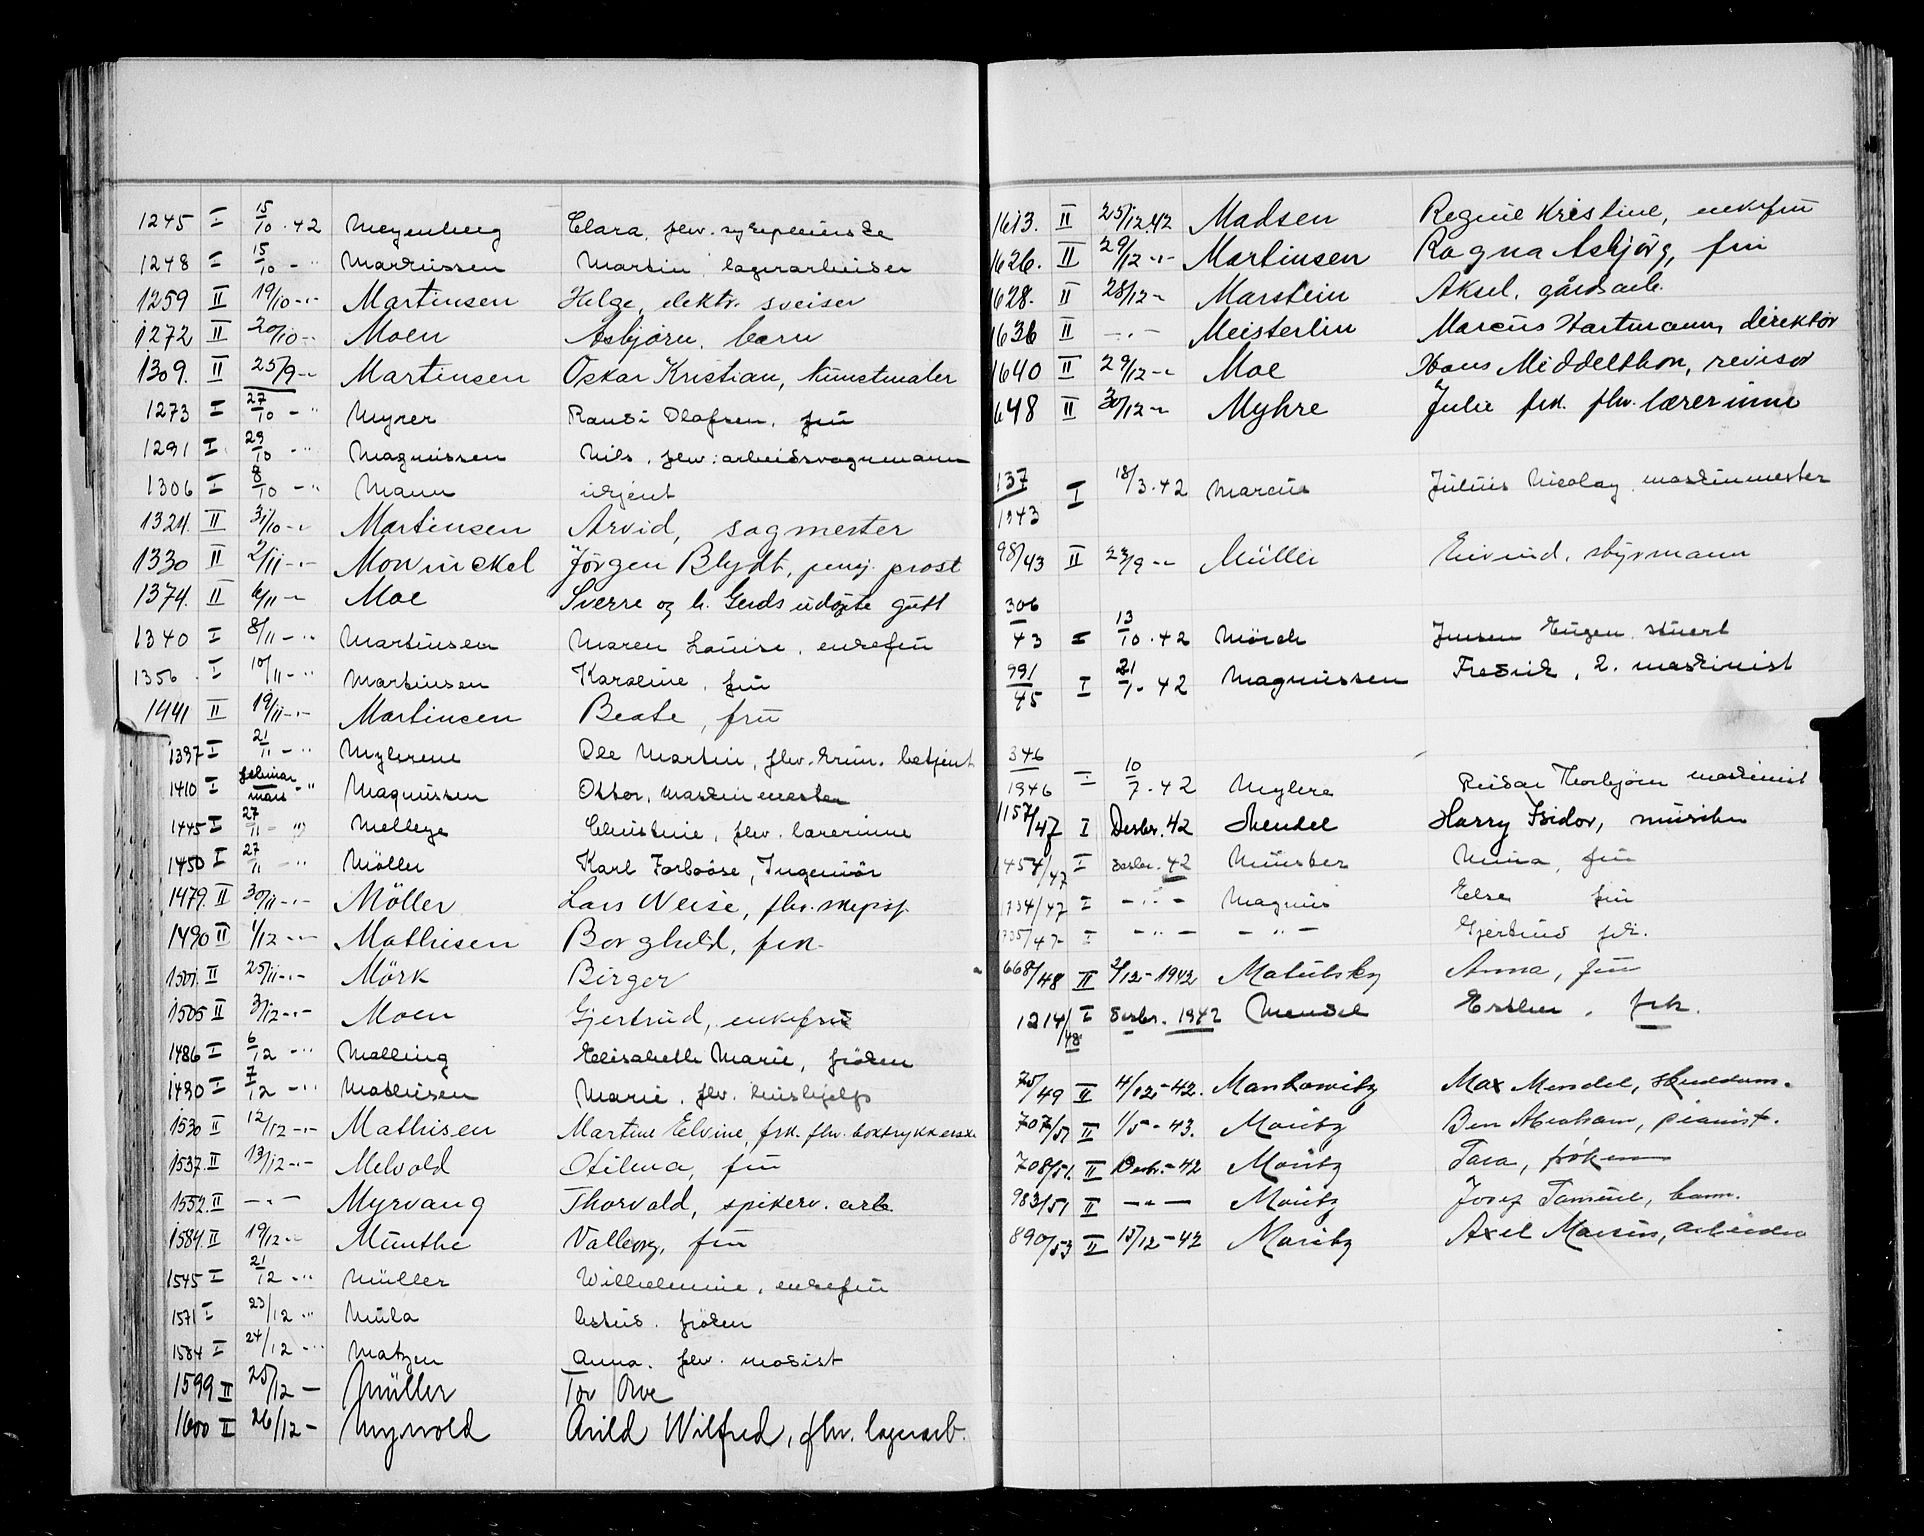 1245 I 15/10 . 42 Meyenberg Clara, flw. sykepleierske
1248 I 15/10 - " Markussen Martin, lagerarbeider
1259 II 19/10 - " - Martinsen Helge, elektr. sveiser
1272 II 20/10 - " Moen Asbjørn, barn
1309. II 25/9 - " Martinsen Oskar Kristian, kunstmaler
1273 I 27/10 - " Myrer Randi Olafsen, fru
1291 I 29/10 - " Magnussen Nils, flw. arbeidsvognmann
1306 I 8/10 - " Mann ukjent
1324. II 31/10 - " Martinsen Arvid, sagmester
1330 II 2/11 - " - Mowinckel Jörgen Blydt, pensj. prost
1374. II 6/11 - " Moe Sverre og h. Gerds udøpte gutt
1340 I 8/11 - " Martinsen Maren Louise, enkefru
1356 . I 10/11 - " Martinsen Karoline, fru
1441 II 19/11 - " - Martinsen Beate, fru
1397 I 21/11 - " Myhrene Ole Martin, flw. krim. betjent
1410 I februar/mars - " Magnussen Ottor, maskinmester
1445 I 27/11 - " Mellbye Christine, flw. lærerinne
1450 I 27/11 - " Möller Karl Forboöse, Ingeniör
1479. II 30/11 - " - Möller Lars Weise, flw. skipsf.
1490 II 1/12 - " - Mathisen Borghild, frk.
1501. II 25/11 - " - Mörk Birger
1505 II 3/12 - " - Moen Gjertrud, enkefru
1486 I 6/12 - " Malling Elisabeth Marie, fröken
1490 I 7/12 - " Mathisen Marie, flw. hushjelp
1530 II 12/12 - " - Mathisen Martine Elvine, frk. flw. boktrykkerske
1537. II 13/12 - " - Melvold Otilma, fru
1552. II - " - Myrvang Thorvald, spikerv. arb.
1584. II 19/12 - " Munthe Valborg, fru
1545 I 21/12 - " Müller Wilhelmine, enkefru
1571 I 23/12 " Mula fröken
1584 I 24/12 - " Matzen Anna, flw. modist
1599 II 25/12 - Müller Tor Ove
1600 II 26/12 - Myrvold Arild Wilfred, flw. lagerarb.
1613. II 25/12 42 Madsen Regine Kristine, enkefru
1626. II 29/12 - " - Martinsen Ragna Asbjörg, fru
1628. II 28/12 - " Marstein Aksel, gårdsarb.
1636 II - " - Meisterlin Marcus Hartmann, direktör
1640 II 29/12 - " Moe Hans Middelthon, revisor
1648 II 30/12 - " Myhre Julie frk. flw. lærerinne
137/1943 I 18/3 . 42 Marcus Julius Nicolay, maskinmester
98/43 II 23/9 - " Müller Eivind, styrmann
306/43 I 13/10 . 42 Mörch Jensen Eugen, stuert
991/45 I 21/1 - 42 Magnussen Fredrik, 2. maskinist
346/1946 I 10/7 . 42 Myhre Reidar Thorbjörn maskinist
1157/47 I Desbr. 42 Mendel Harry Isidor, musiker
1454/47 I desbr. 42 Münster Mina, fru
1734/47 I - " - Magnus Else fru
1735/47 I - " - - " - Gjertrud frk.
668/48 II 2/12 - 1942 Matulsky Anna, fru
1214/48 I desbr. 1942 Mendel Esther, frk.
75/49 II 4/12 - 42. Mankowitz Max Mendel,
707/51 II 1/5 - 43. Moritz Ben Abraham, pianist.
708/51. II Desbr. - 42 Moritz Sara, fröken
983/51 II - " - Moritz Josef Samuel, barn.
890/53 II 15/12 - 42 Moritz Axel Marcus, arbeider